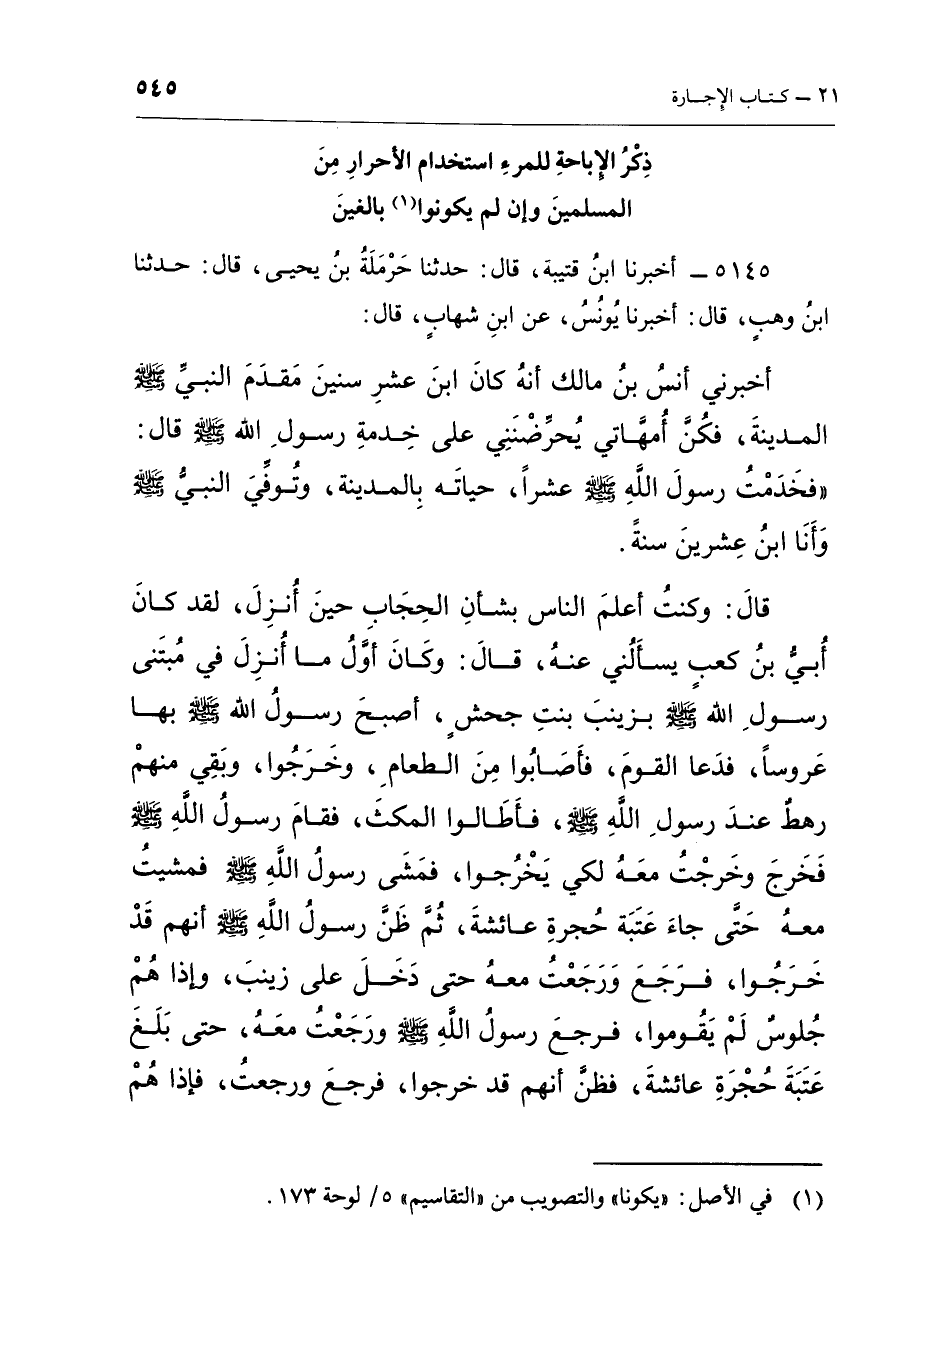 ٢١ – كتاب الإجارة
٥٤٥
ذِكْرُ الإِباحةِ للمرءِ استخدام الأحرارِ مِنَ
المسلمينَ وإن لم يكونوا(١) بالغينَ
٥١٤٥ – أخبرنا ابنُ قتيبة، قال: حدثنا حَرْمَلَةُ بنُ يحيى، قال: حدثنا
ابنُ وهبٍ، قال: أخبرنا يُونُسُ، عن ابنِ شهابٍ، قال:
أخبرني أنسُ بنُ مالك أنهُ كانَ ابنَ عشرِ سنينَ مَقدَمَ النبيِّ ﷺ
المدينةَ، فكُنَّ أُمهَّاتي يُحرِّضْنَنِي على خِدمةِ رسولِ الله ﷺ قال:
«فخَدَمْتُ رسولَ اللَّهِ ﷺ عشراً، حياتَه بالمدينة، وتُوفِّيَ النبيُّ ﷺ
وَأَنَا ابنُ عِشرينَ سنةً.
قالَ: وكنتُ أعلمَ الناس بشأنِ الحِجَابِ حينَ أُنزِلَ، لقد كانَ
أُبيُّ بنُ كعبٍ يسأَلُني عنهُ، قالَ: وكَانَ أوَّلُ ما أُنزِلَ في مُبتَنى
رسولِ الله ﷺ بزينبَ بنتِ جحشٍ، أصبحَ رسولُ الله ﷺ بها
عَروساً، فدَعا القومَ، فأَصَابُوا مِنَ الطعامِ، وخَرَجُوا، وبَقِي منهمْ
رهطٌ عندَ رسولِ اللَّهِ ﷺ، فأَطَالوا المكثَ، فقامَ رسولُ اللَّهِ ﷺ
فَخَرجَ وخَرجْتُ معَهُ لكي يَخْرُجوا، فمَشَى رسولُ اللَّهِ ﷺ فمشيتُ
معهُ حَتَّى جاءَ عَتَبَة حُجرةِ عائشةَ، ثُمَّ ظَنَّ رسولُ اللَّهِ ﷺ أنهم قَدْ
خَرَجُوا، فرَجَعَ وَرَجَعْتُ معهُ حتى دَخَلَ على زينبَ، وإذا هُمْ
جُلوسٌ لَمْ يَقُوموا، فرجعَ رسولُ اللَّهِ ﷺ ورَجَعْتُ معَهُ، حتى بَلَغَ
عَتَبَةَ حُجْرَةِ عائشةَ، فظنَّ أنهم قد خرجوا، فرجعَ ورجعتُ، فإذا هُمْ
(١) في الأصل: «يكونا» والتصويب من «التقاسيم» ٥/ لوحة ١٧٣.